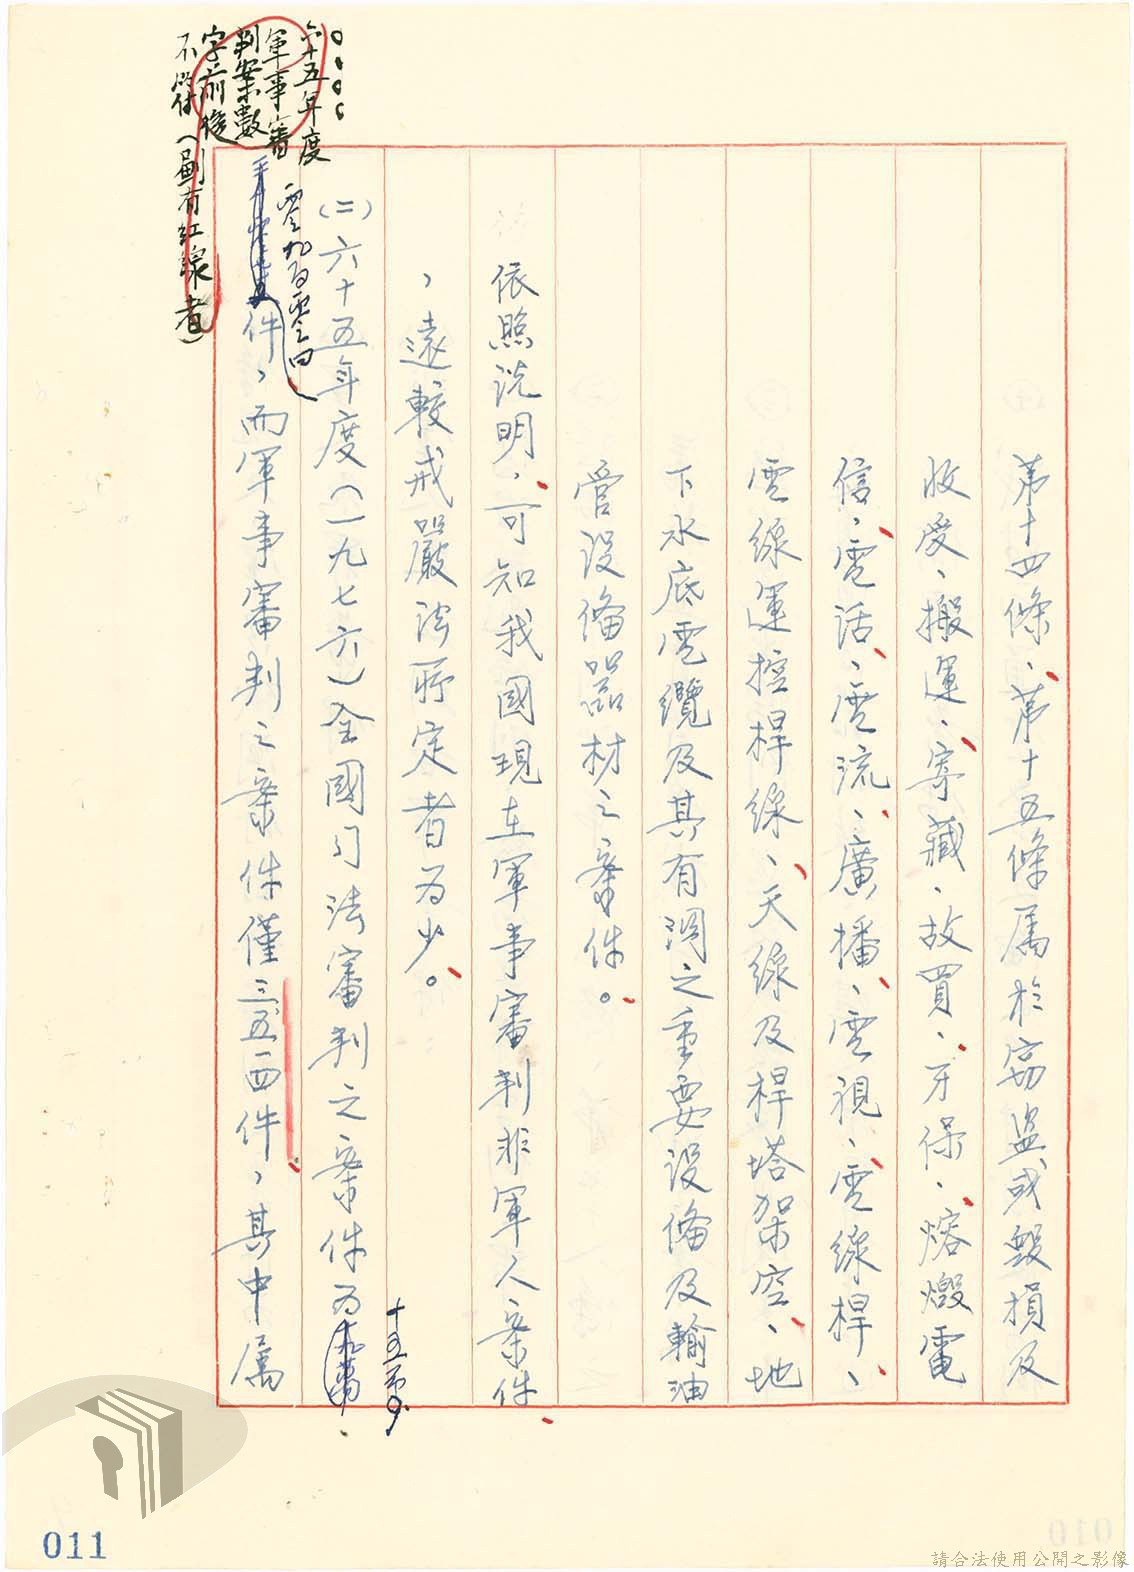 第十四條、第十五條屬於竊盜或毀損及
收受、搬運、寄藏、故買、牙保、熔燬電
信、電話、電流、廣播、電視、電線桿、
電線運控桿線、天線及桿塔架空、地
下水底電纜及其有關之重要設備及輸油
管設備器材之案件。
依照說明，可知我國現在軍事審判非軍人案件
，遠較戒嚴法所定者為少。
(二)六十五年度(一九七六)全國司法審判之案件為
十五萬
零九百零四
件，而軍事審判之案件僅三五一四件，其中屬
六十五年度
軍事審
判案數
字前後
不符(劃有紅線者)
011
請合法使用公開之影像